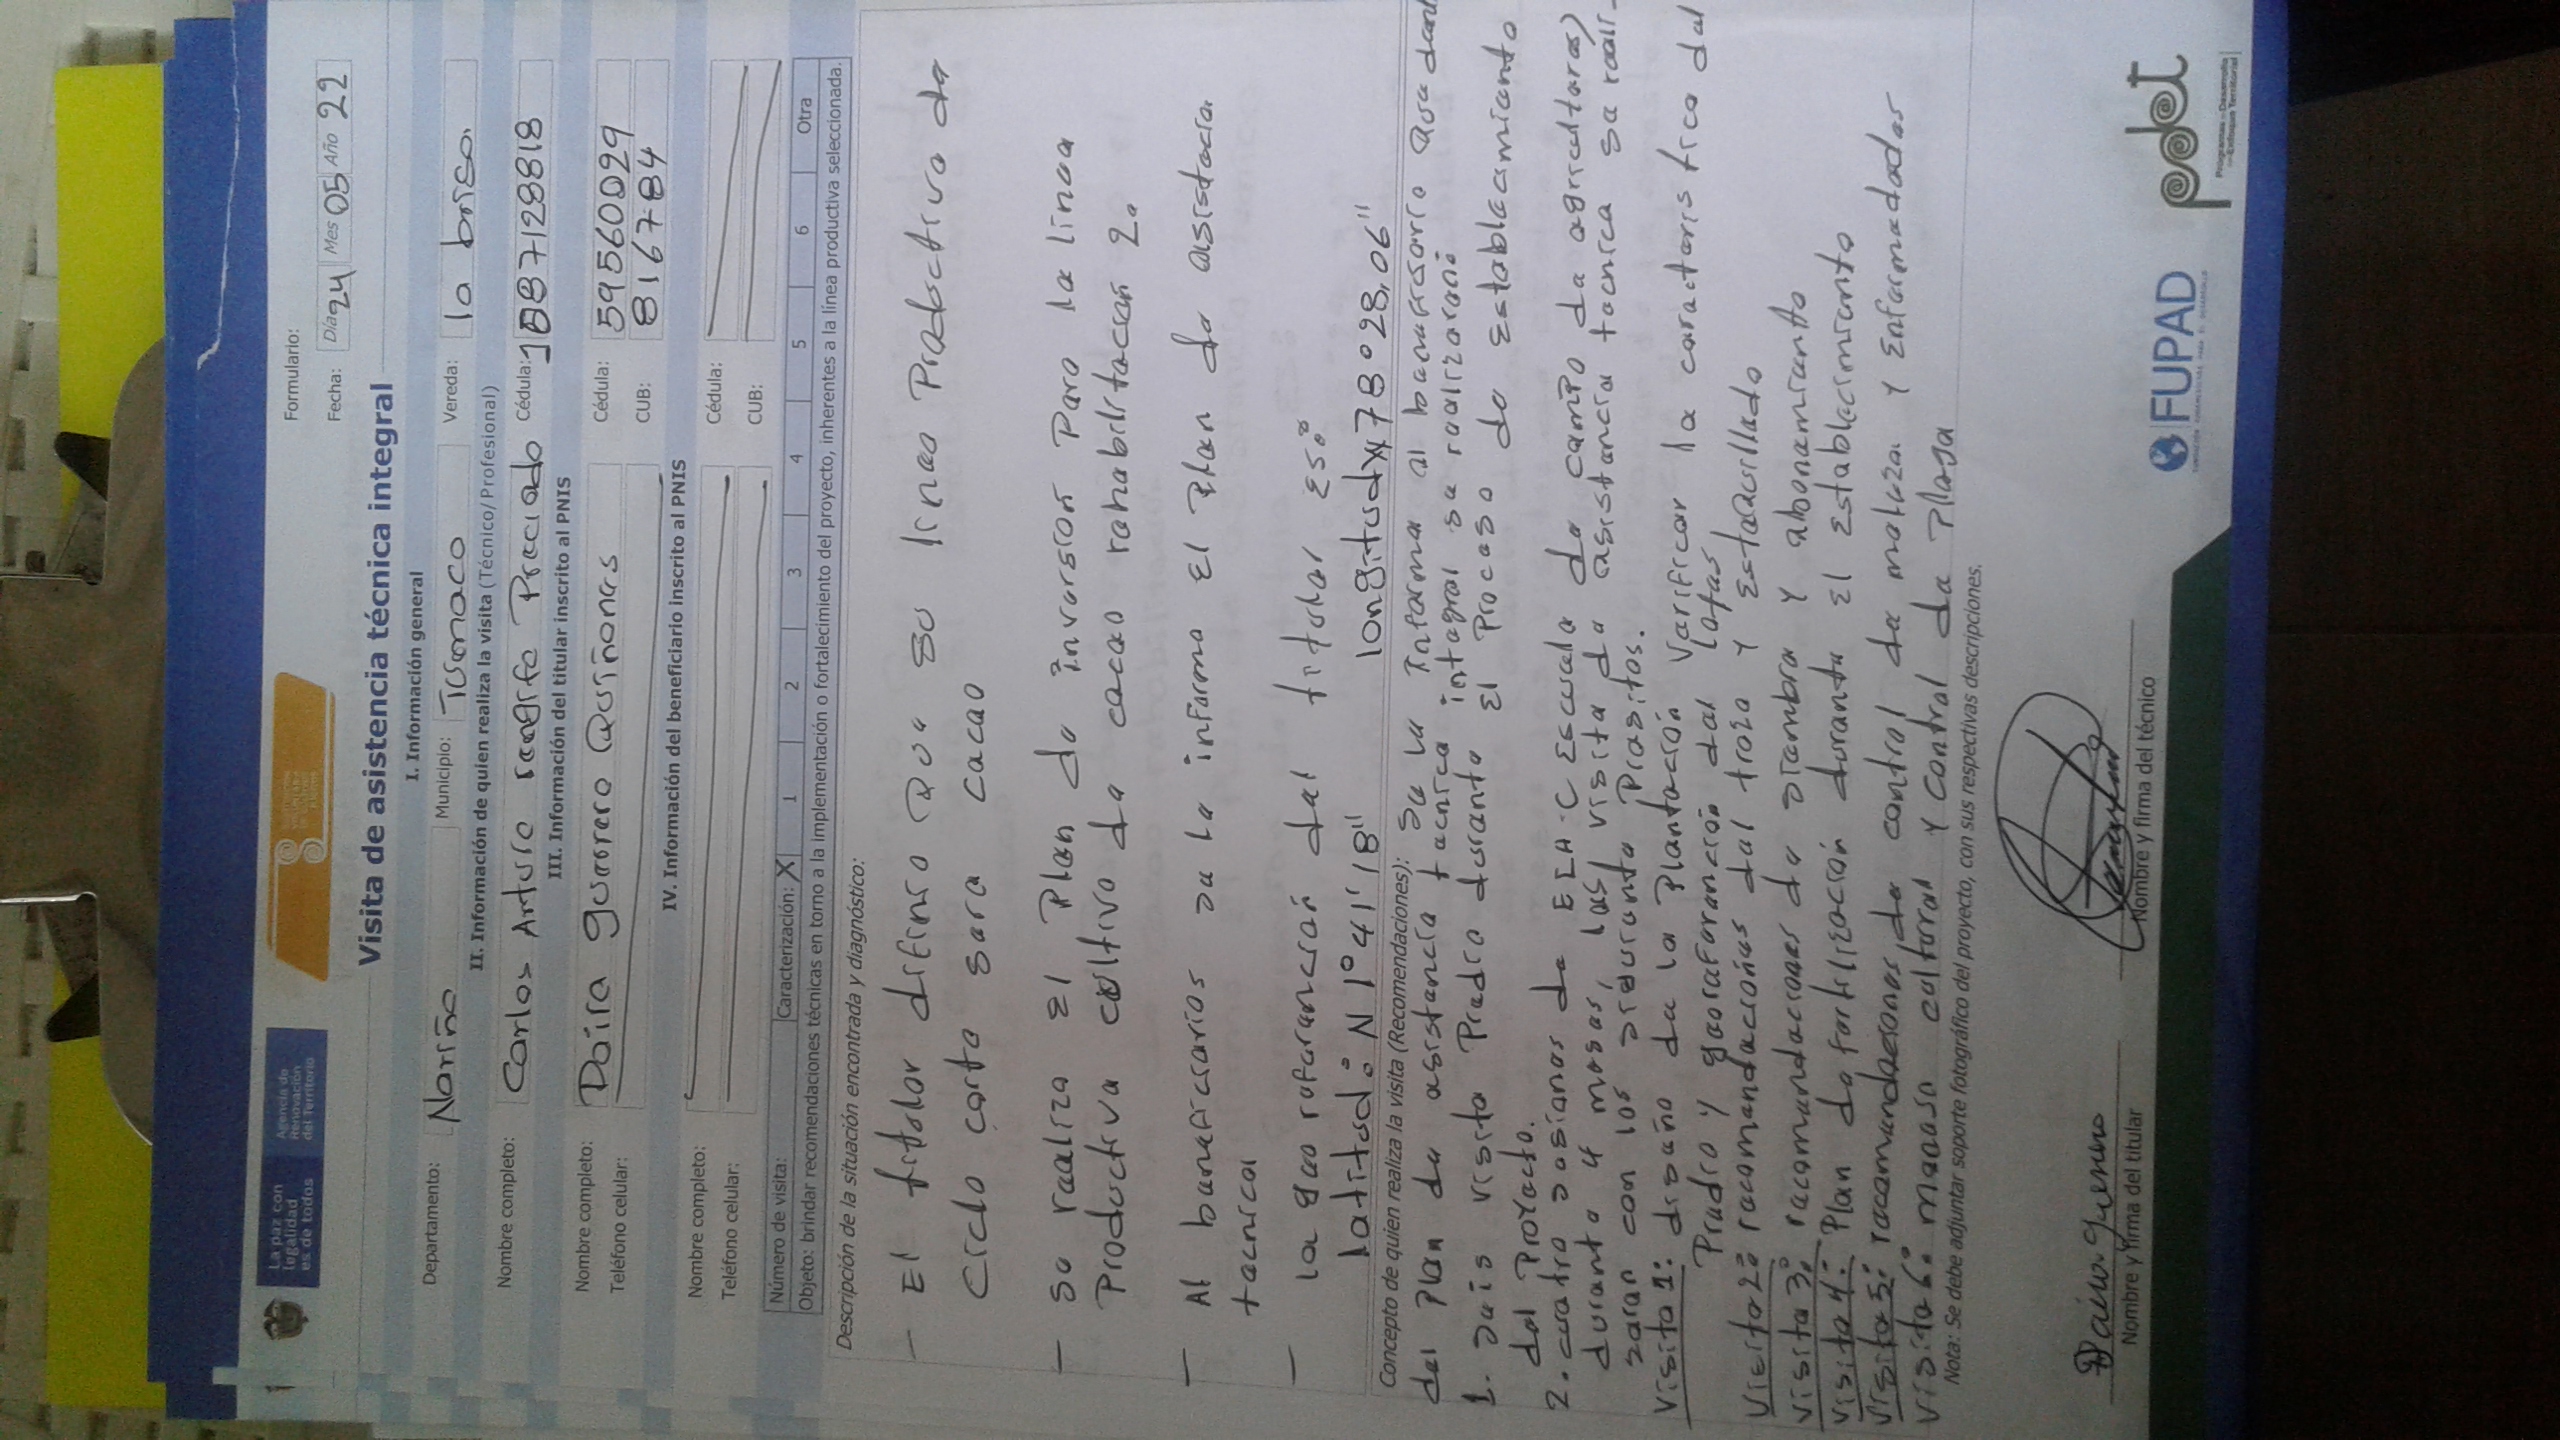 La paz con
legalidad
es de todos
Agencia de
Renovación
del Territorio
Formulario:
Fecha: Día 24 Mes 05 Año 22
Visita de asistencia técnica integral
I. Información general
Departamento: Nariño Municipio: Tumaco Vereda: la brisa
II. Información de quien realiza la visita (Técnico/Profesional)
Nombre completo: Carlos Arturo rengifo Preciado Cédula: 1087128818
III. Información del titular inscrito al PNIS
Nombre completo: Daira guerrero Quiñones Cédula: 59560029
Teléfono celular: CUB: 816784
IV. Información del beneficiario inscrito al PNIS
Nombre completo: Cédula:
Teléfono celular: CUB:
Número de visita: Caracterización: X 1 2 3 4 5 6 Otra
Objeto: brindar recomendaciones técnicas en torno a la implementación o fortalecimiento del proyecto, inherentes a la línea productiva seleccionada.
Descripción de la situación encontrada y diagnóstico:
— El titular difinio Que su linea Productiva de
Ciclo corto sera cacao
— se realiza El Plan de inversion Para la linea
Productiva cultivo de cacao rehabilitacion 2.
— Al beneficiarios se le informa El Plan de asistecia
tecnica
— la geo referencian del titular Es:
latitud: N 1° 41' 18" longitud x 78° 28,06"
Concepto de quien realiza la visita (Recomendaciones): Se le Informa al beneficiario Que dent
del Plan de asistencia tecnica integral se realizaran:
1. seis visita Predio durante El Proceso de Establecimiento
del Proyecto.
2. cuatro sesiones de ELA-C Escuela de campo de agricultores)
durante 4 meses, las visita de asistencia tecnica se reali-
zaran con los siguiente Prositos.
Visita 1: diseño de la Plantación Verificar la caracteristica del
Predio y georeferención del Lotes
Visita 2: recomendacioñes del trozo y Estaquillado
Visita 3: recomendaciones de siembra y abonamiento
Visita 4: Plan de fertilización durante El Establecimiento
Visita 5: recomendaciones de control de maleza y Enfermedades
Visita 6: manejo cultural y control de Plaga
Nota: Se debe adjuntar soporte fotográfico del proyecto, con sus respectivas descripciones.
Daira guerrero
Nombre y firma del titular
Nombre y firma del técnico
FUPAD
pdet
Programas de Desarrollo
con Enfoque Territorial